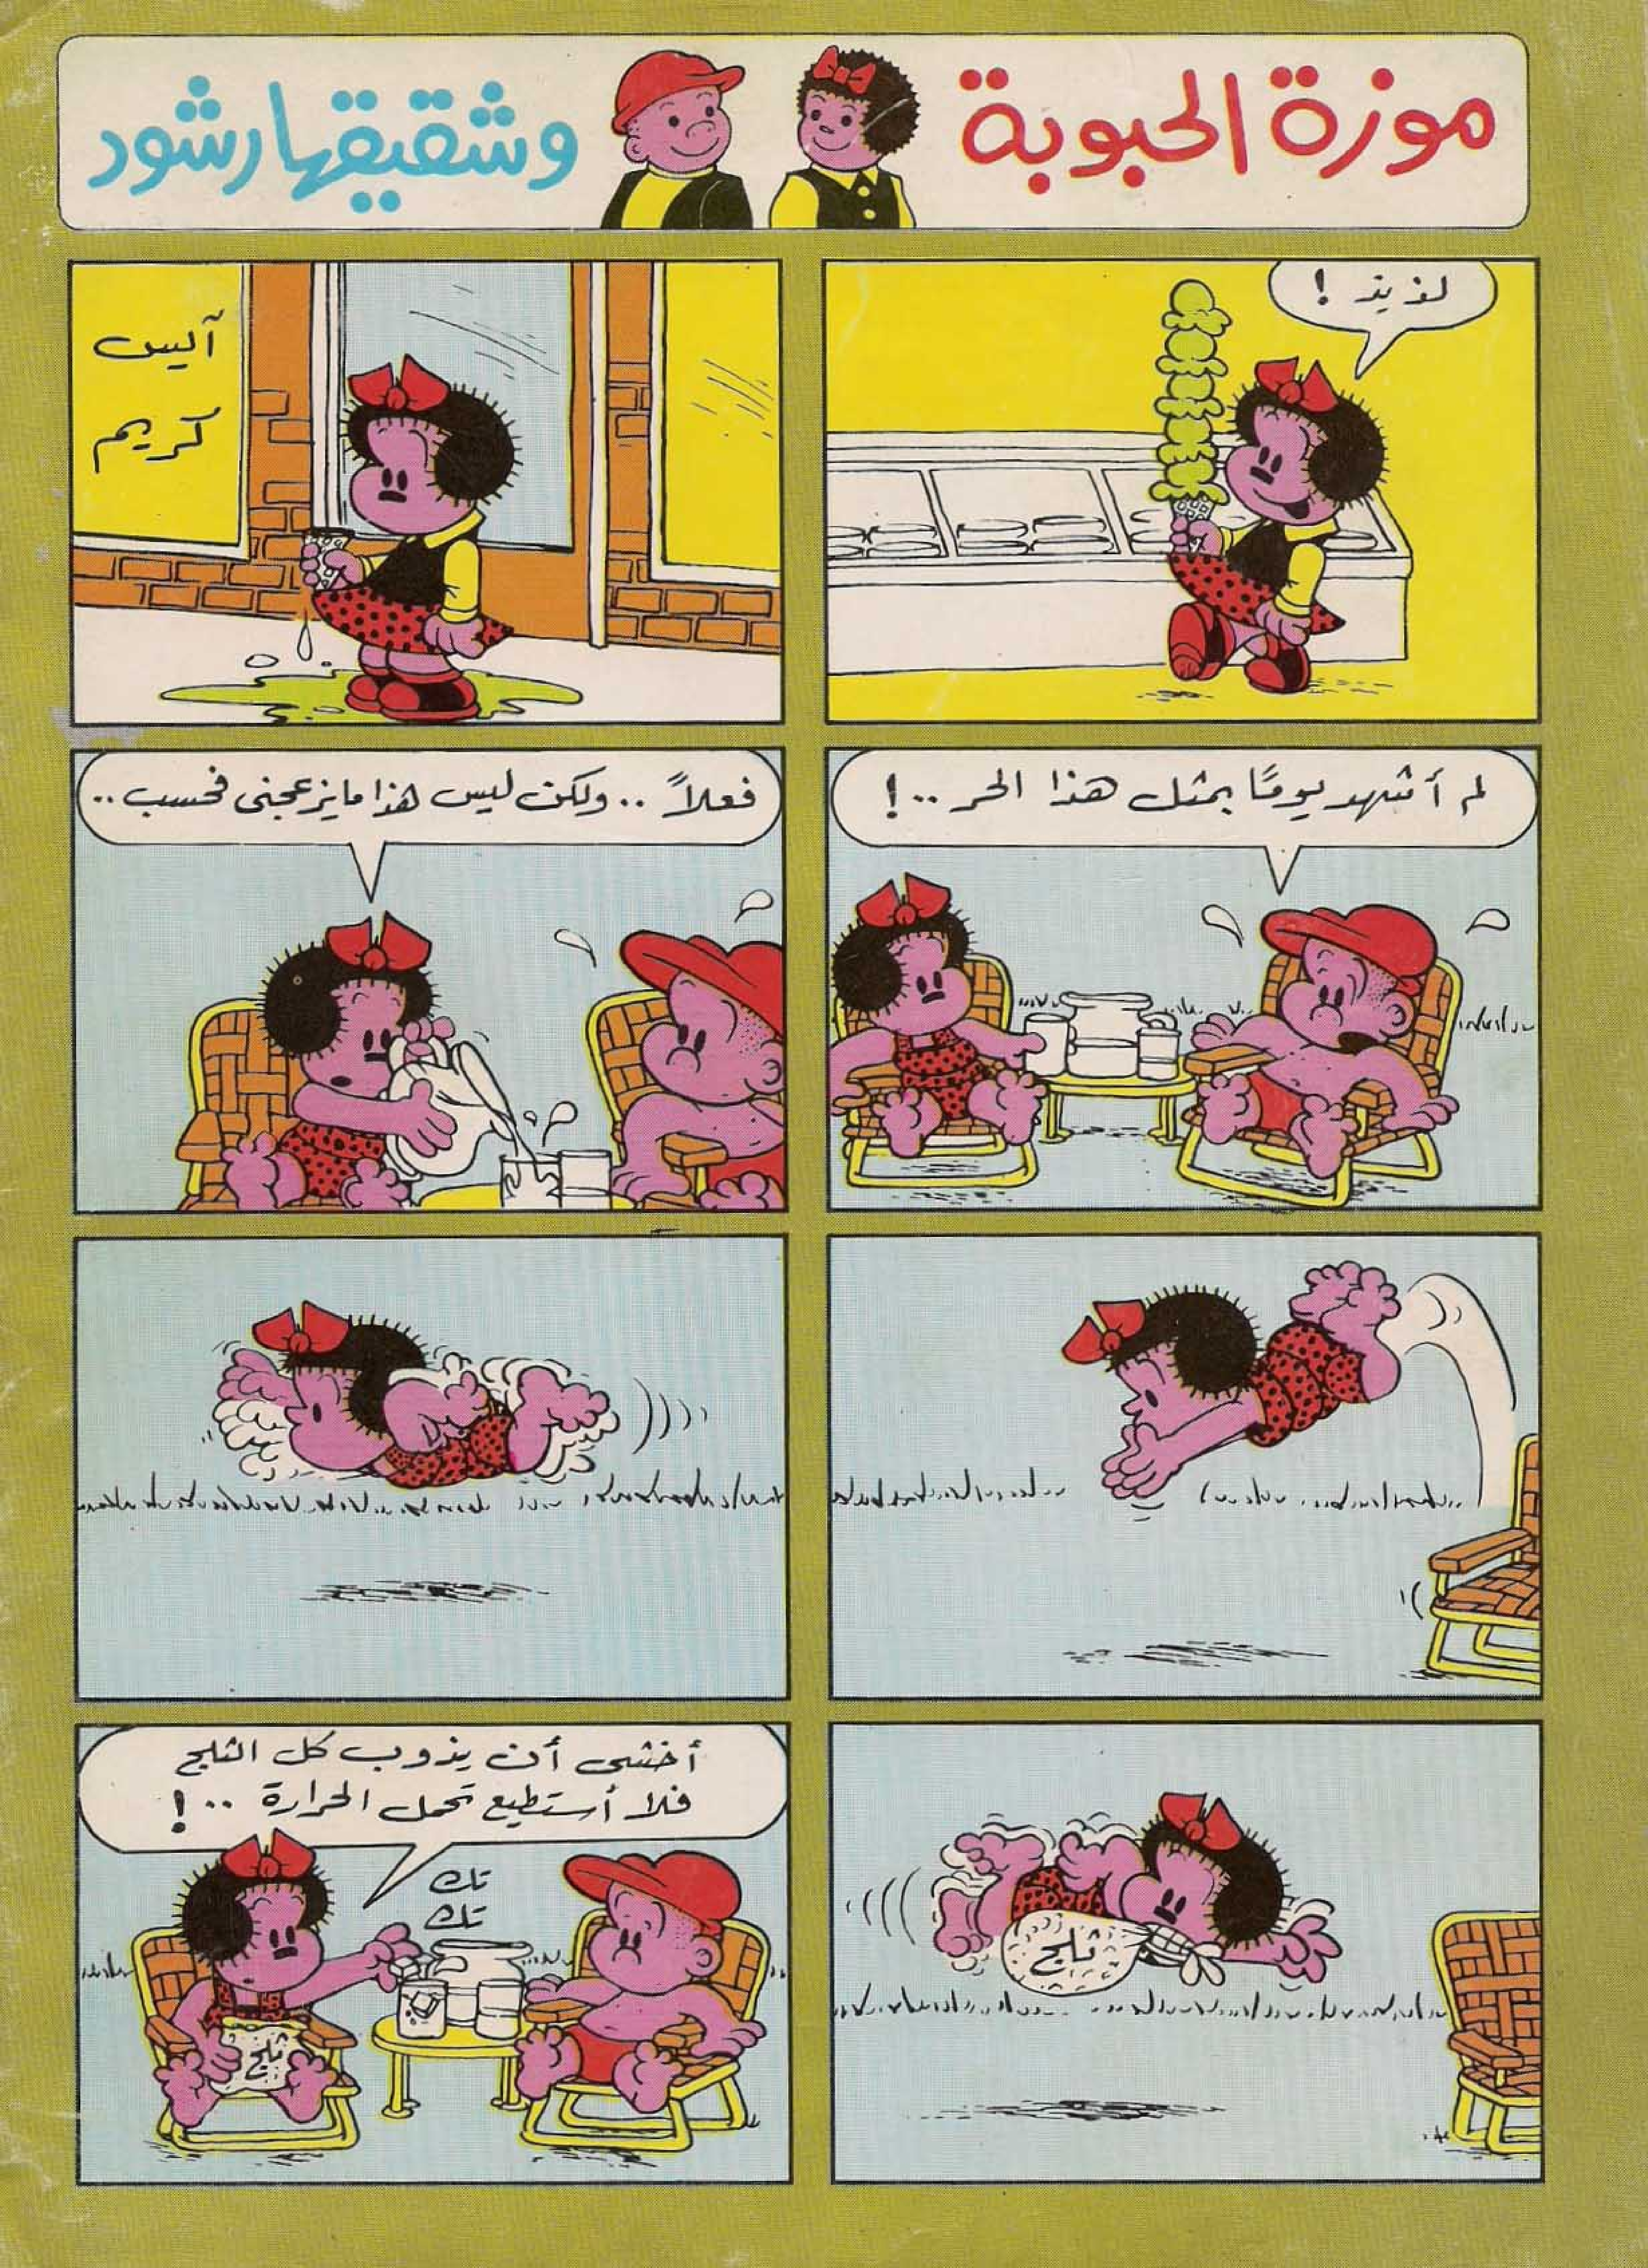 موزة الحبوبة
وشقيقها رشود
لذيذ !
آليس
كريم
لم أشهد يومًا بمثل هذا الحر ..!
فعلاً .. ولكن ليس هذا ما يزعجنى فحسب ..
ثلج
أخشى أن يذوب كل الثلج
فلا أستطيع تحمل الحرارة ..!
تك
تك
ثلج